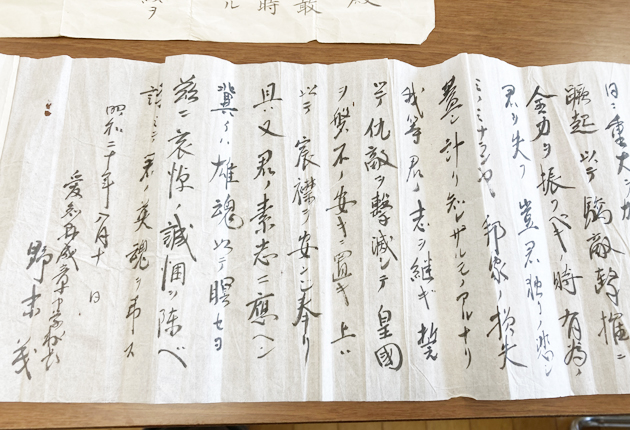 時
ル
日ニ重大ヲ加
蹶起以テ驕敵撃摧ニ
全力ヲ振フベキノ時有為ノ
君ヲ失フ豈君獨リノ悲シ
ミノミナランヤ邦家ノ損失
蓋シ計リ知レザルモノアルナリ
我等君ノ志ヲ継ギ誓
ツテ仇敵ヲ撃滅シテ皇國
ヲ磐石ノ安キニ置キ上ハ
以テ宸襟ヲ安ンジ奉リ
且又君ノ素志ニ應ヘン
冀クハ雄魂以テ瞑セヨ
茲ニ哀悼ノ誠悃ヲ陳ベ
謹ミテ君ノ英魂ヲ弔ス
昭和二十年八月十日
愛知縣成章中学校長
野末茂